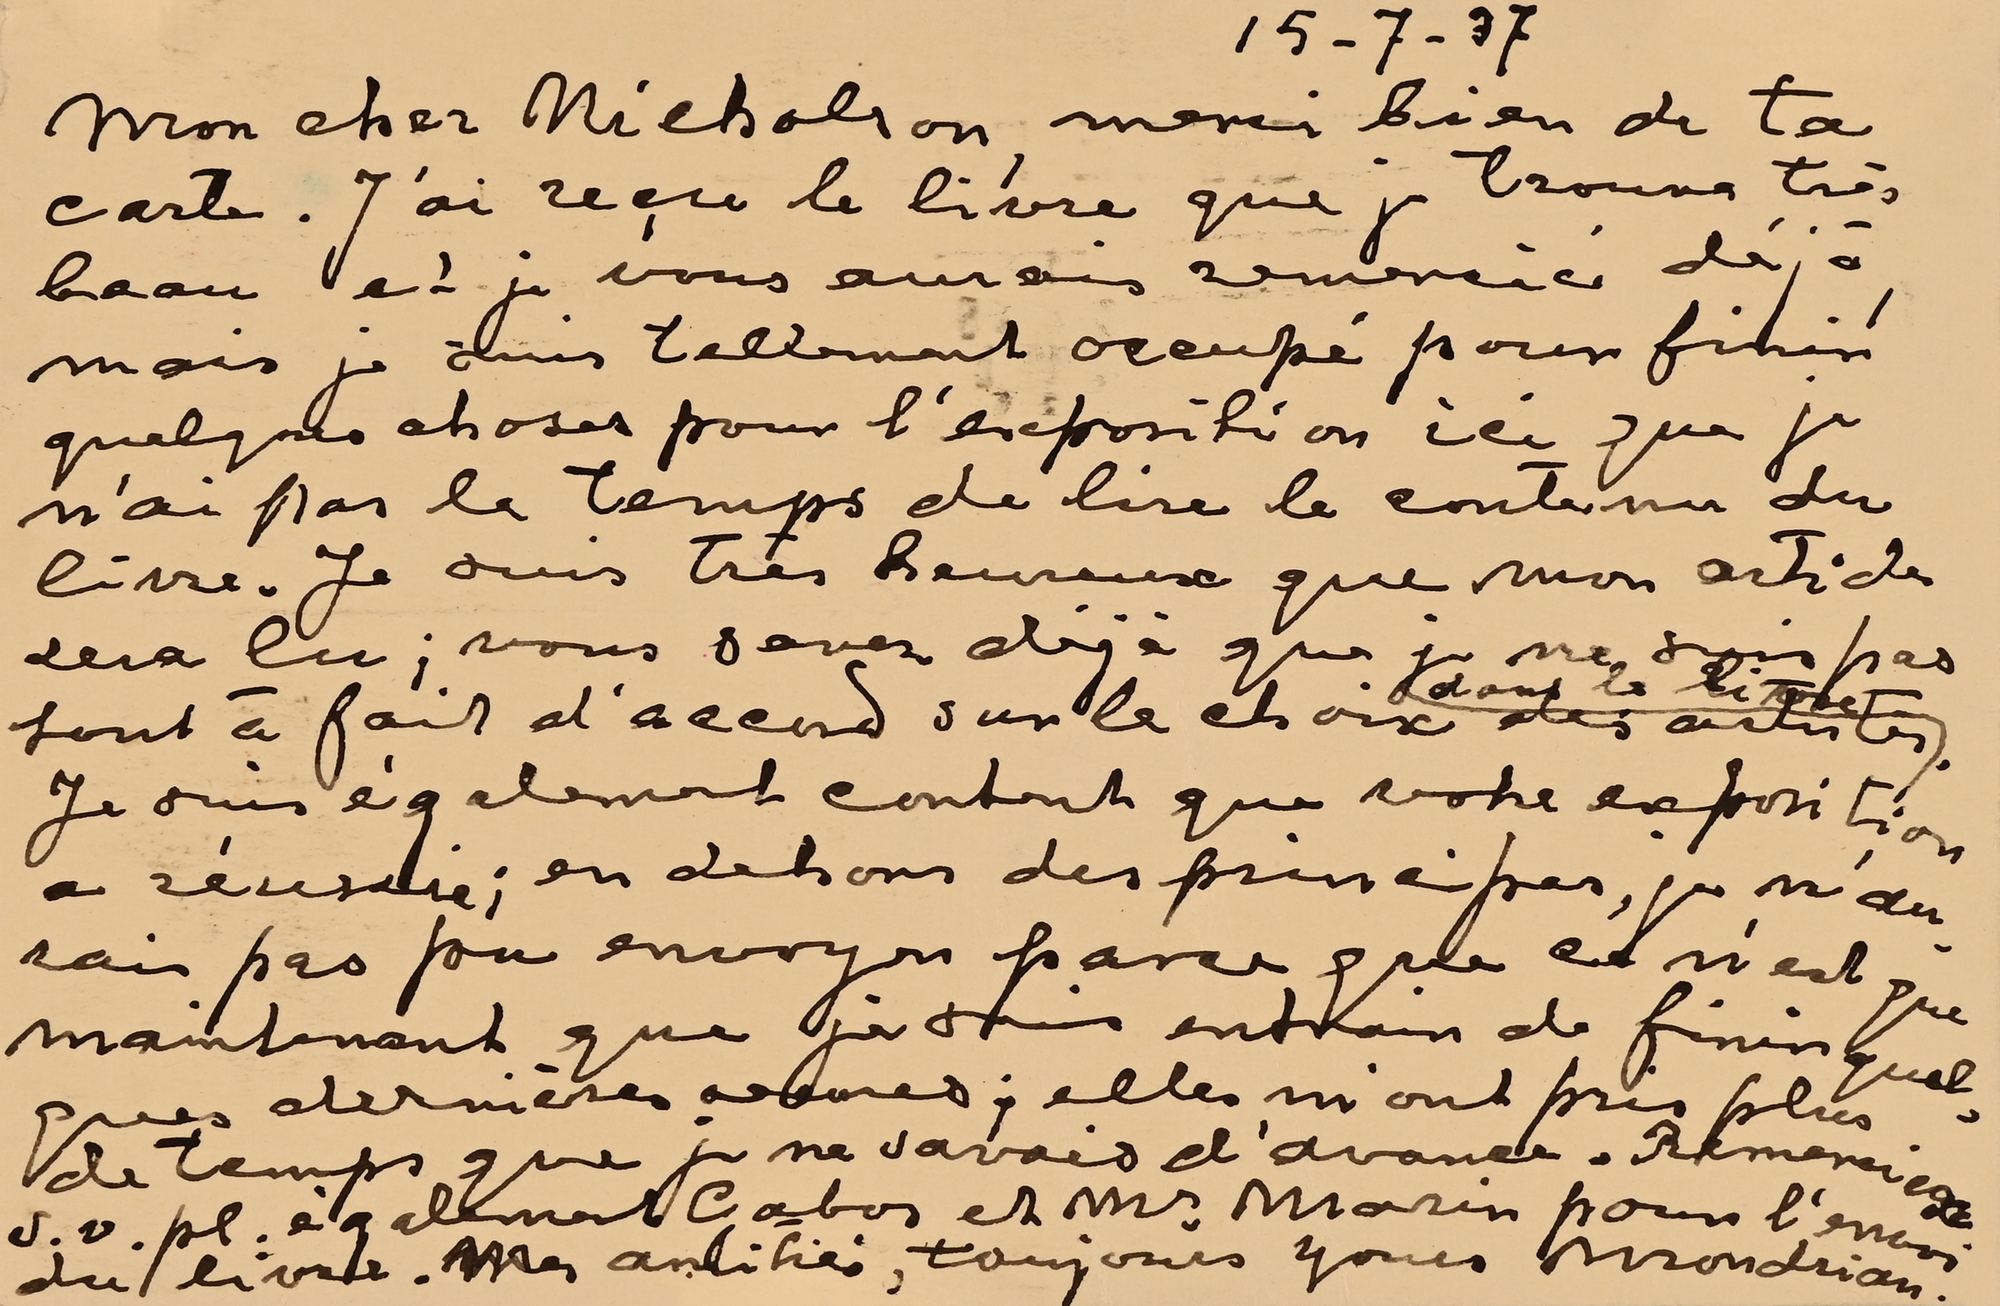 15-7-37
Mon cher Nicholson, merci bien de ta
carte. J'ai reçu le livre que je trouve très
beau et je vous aurais remercié déjà,
mais je suis tellement occupé pour finir
quelques choses pour l'exposition ici que je
n'ai pas le temps de lire le contenu du
livre. Je suis très heureux que mon article
sera lu; vous savez déjà que je ne suis pas
(dans le livre)
tout à fait d'accord sur le choix des artistes.
Je suis également content que votre exposition
a réussie; en dehors des principes, je n'au-
rais pas pu envoyer parce que ce n'est que
maintenant que je suis entrain de finir quel-
ques dernières; elles m'ont pris plus
de temps que je ne savais d'avance. Remerciez
s.v.pl. également Gabos et Mr. Martin pour l'envoi
du livre. Mes amitiés, toujours yours Mondrian.